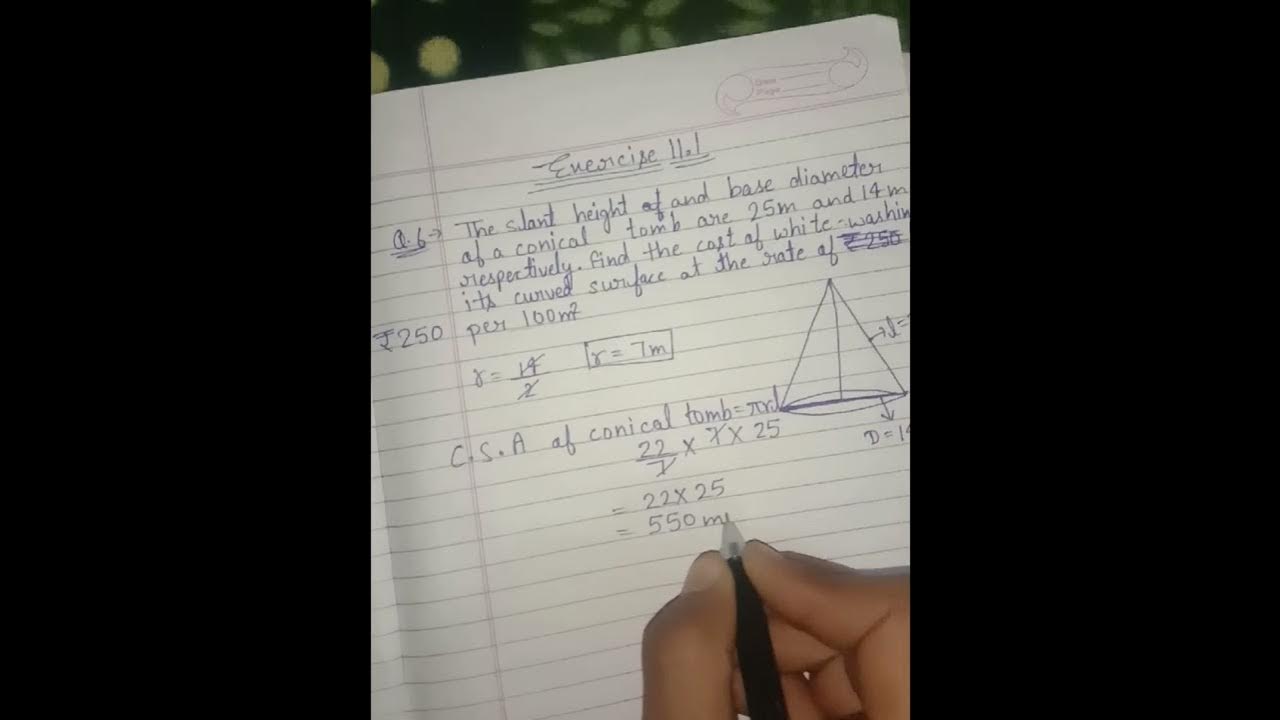 Exercise 11.1
Q.6→ The slant height of and base diameter
of a conical tomb are 25m and 14m
respectively. find the cost of white-washin
its curved surface at the rate of ₹250
₹250 per 100m²
r = 14/2 r = 7m
l=
D=14
C.S.A of conical tomb = πrl
22/7 × 7 × 25
= 22×25
= 550 m